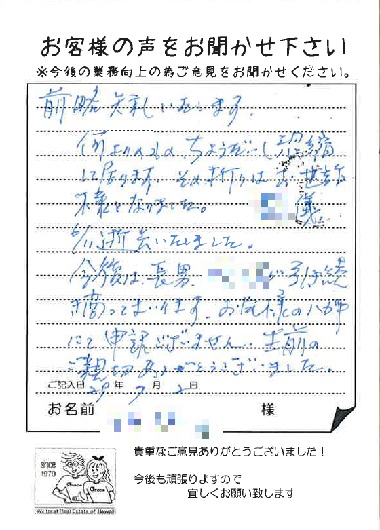 お客様の声をお聞かせ下さい
※今後の業務向上の為ご意見をお聞かせください。
前略 失礼いたします。
何よりのもの ちょうだいし 恐縮
して居ります その折りは お世話
様になりました。 儀
6/11逝去いたしました。
今後は、長男 が引き続
き商ってまいります。お客様のハガキ
にて申訳ございません… 生前の
ご親切ありがとうございました…
ご記入日 29年 7月 2日
お名前 様
貴重なご意見ありがとうございました!
今後も頑張りますので
宜しくお願い致します
SINCE
1979